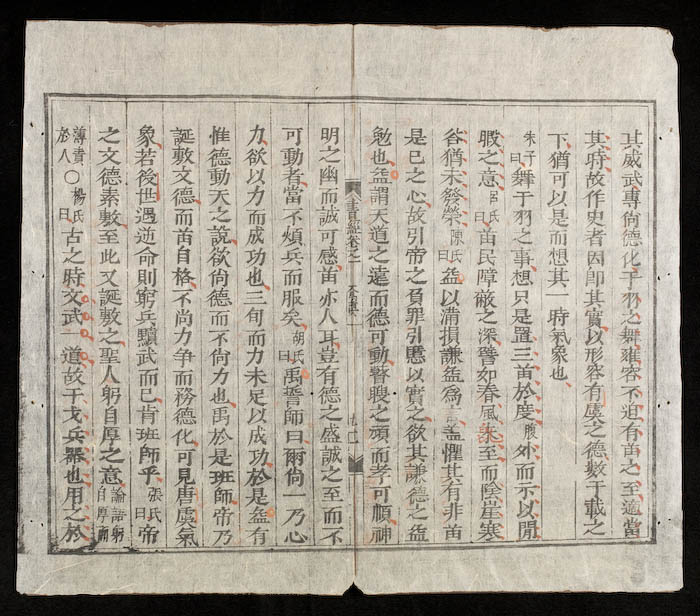 其威武專尚德化干羽之舞雍容不迫有苗之至適當
其時故作史者因即其實以形容有虞之德數千載之
下猶可以是而想其一時氣象也
朱子曰舞干羽之事想只是置三苗於度外而示以閒
暇之意呂氏曰苗民障蔽之深譬如春風至而陰崖寒
谷猶未發榮陳氏曰益以滿損謙益爲言蓋懼其有非苗
是己之心故引帝之負罪引慝以實之欲其謙德之益
勉也益謂天道之遠而德可動瞽瞍之頑而孝可順神
書經卷之一
明之幽而誠可感苗亦人耳豈有德之盛誠之至而不
可動者當不煩兵而服矣胡氏曰禹誓師曰爾尚一乃心
力欲以力而成功也三旬而力未足以成功於是益有
惟德動天之說欲尚德而不尚力也禹於是班師帝乃
誕敷文德而苗自格不尚力爭而務德化可見唐虞氣
象若後世遇逆命則窮兵黷武而已肯班師乎張氏曰帝
之文德素敷至此又誕敷之聖人躬自厚之意論語躬自厚而
薄責於人○楊氏曰古之時文武一道故干戈兵器也用之於